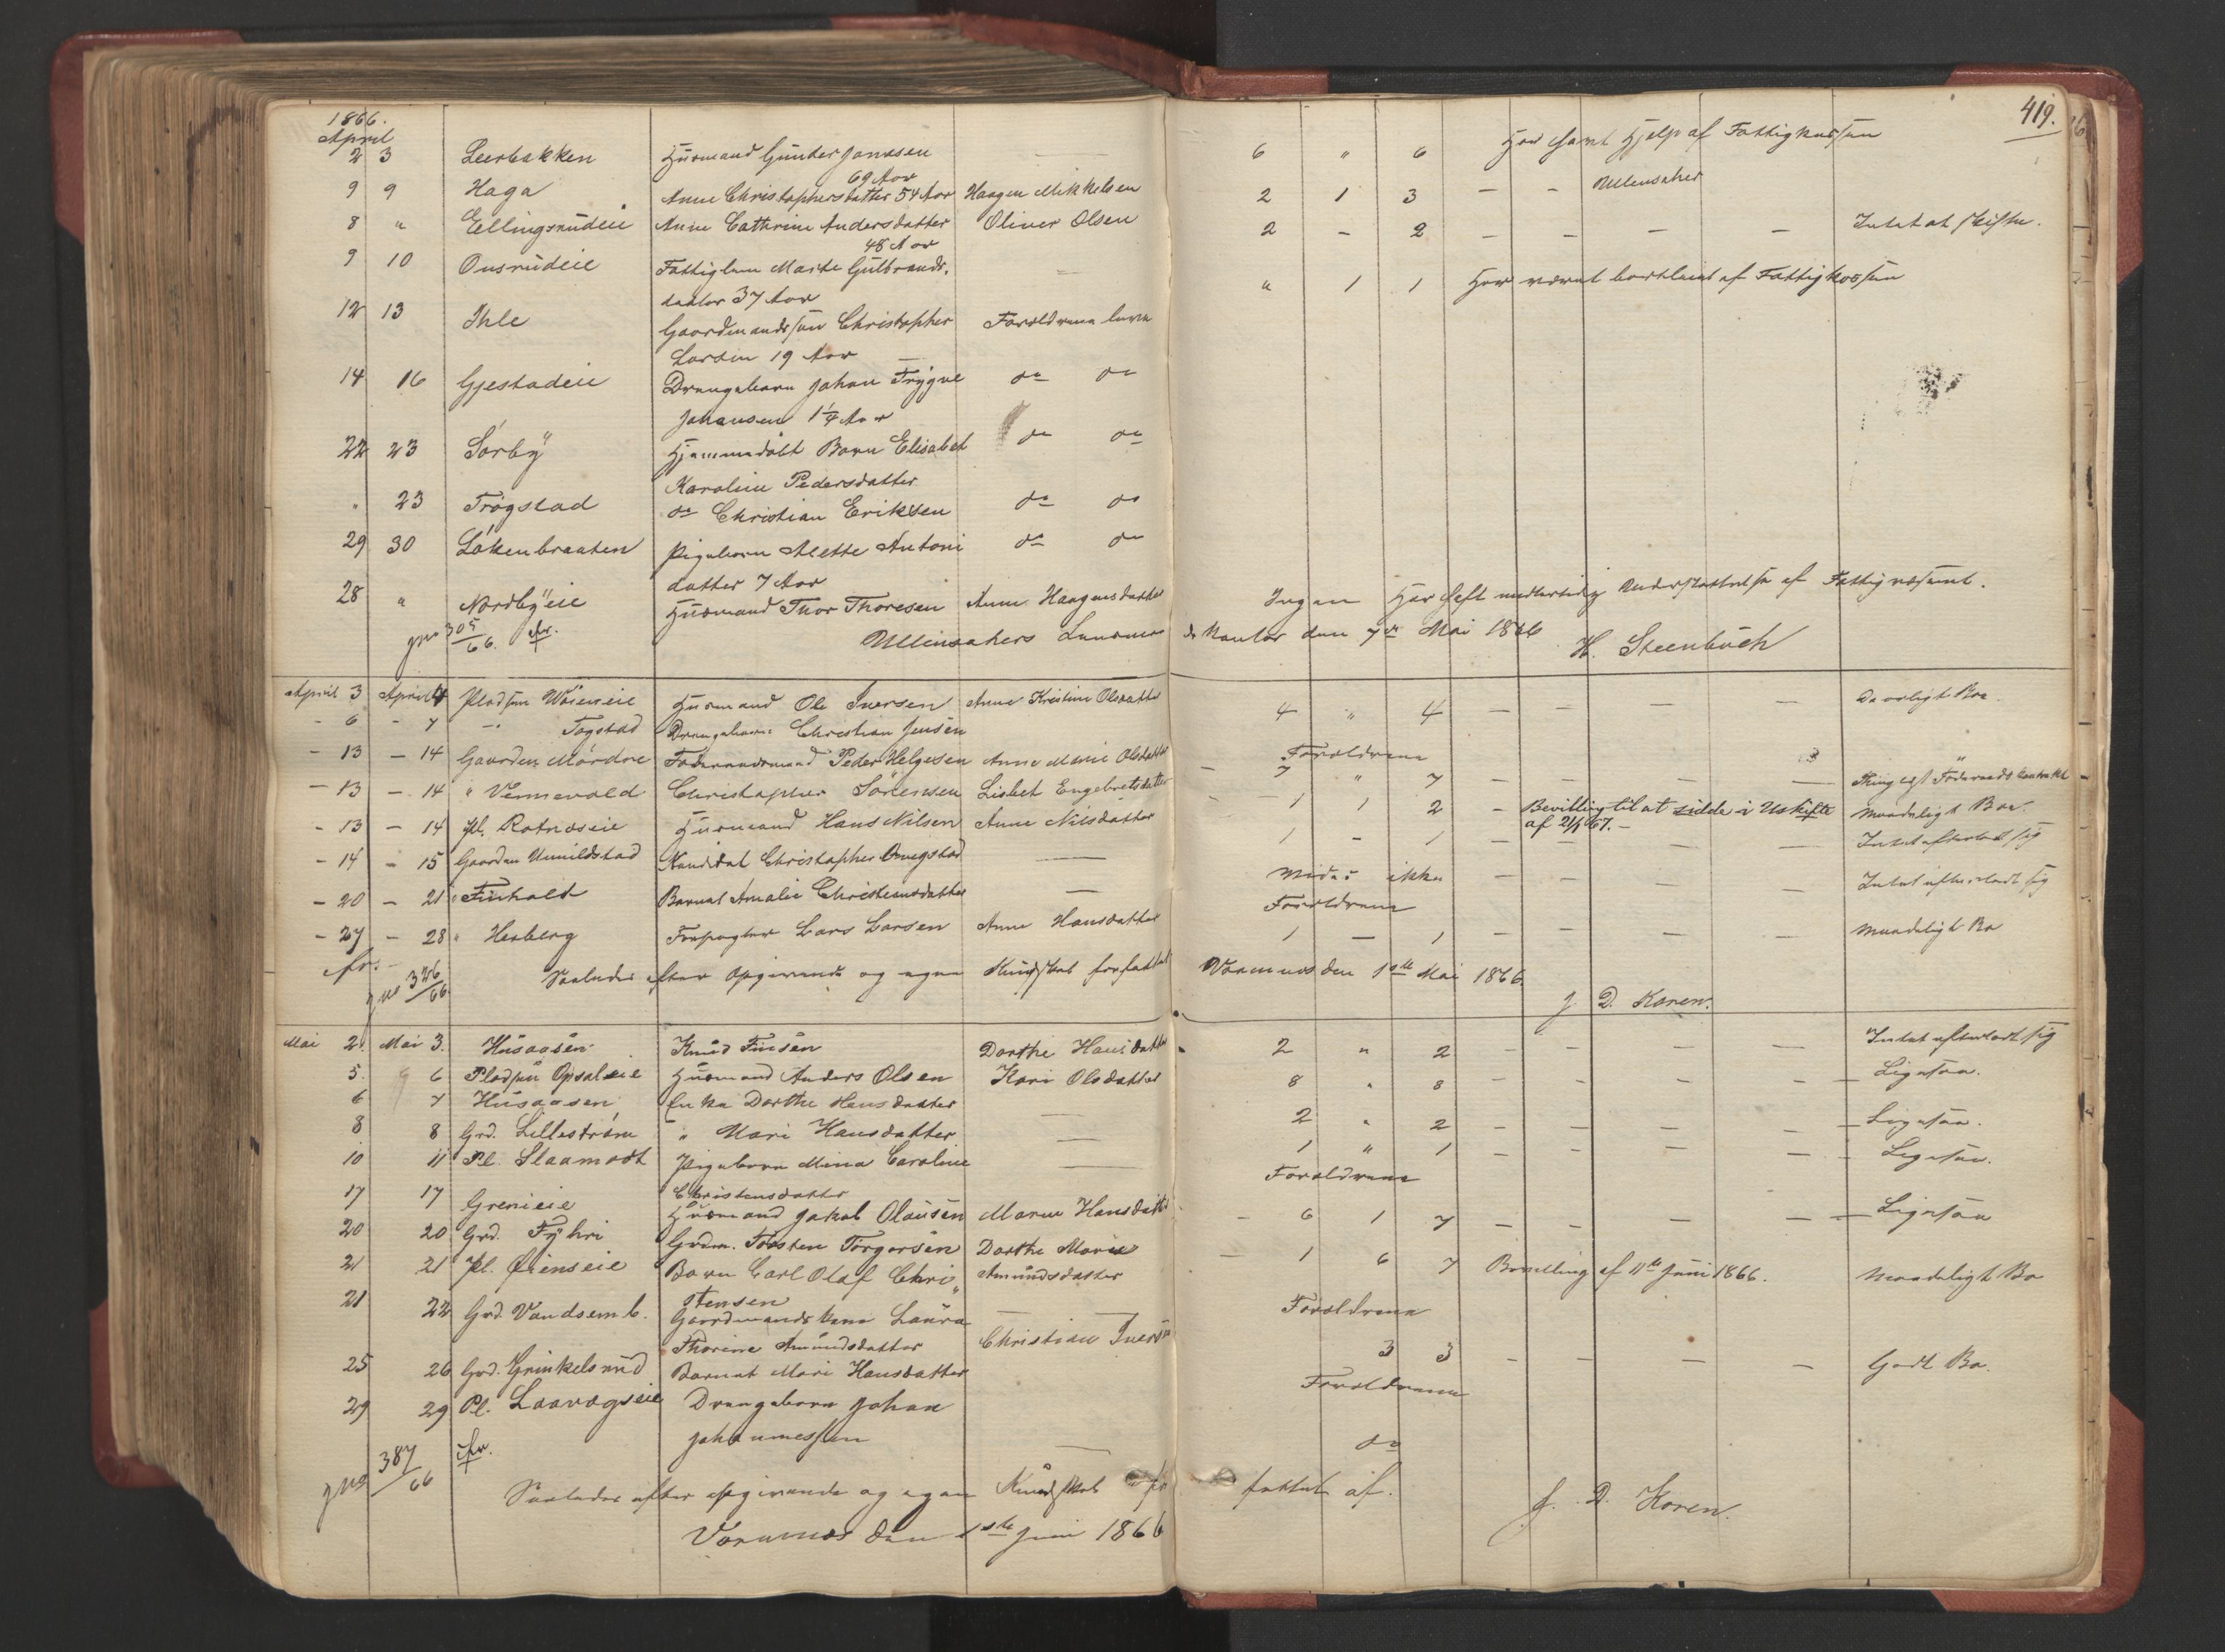 419.
1866.
April
2 3 Leerbakken Huusmand Gunder Jonassen — — 6 " 6 Har havt Hjelp af Fattigkassen
69 Aar
9 9 Haga Anne Christophersdatter 54 Aar Haagen Mikkelsen 2 1 3 — - Ullensaker
8 " Ellingsrudeie Anne Cathrine Andersdatter Oliver Olsen 2 - 2 — — — — Intet at skifte.
48 Aar
9 10 Onsrudeie Fattiglem Marte Gulbrands- — " 1 1 Har været bortleiet af Fattigkassen
datter 37 Aar
12 13 Ihle Gaardmandssøn Christopher Forældrene leve
Larsen 19 Aar —
14 16 Gjestadeie Drengebarn Johan Trygve do do
Johansen 1¼ Aar
22 23 Sørby Hjemmedøbt Barn Elisabet do do
Karoline Pedersdatter
" 23 Trøgstad do Christian Eriksen do do
29 30 Løkenbraaten Pigebarn Alette Antoni do do
datter 7 Aar
28 " Nordbyeie Huusmand Thor Thoresen Anne Haagensdatter Ingen Har havt midlertidig Understøttelse af Fattigvæsenet.
Jno 305/66. cfr. Ullensakers Lensmandskontor den 7de Mai 1866 H. Steenbuch
April 3 April 4 Pladsen Woieneie Huusmand Ole Iversen Anne Kristine Olsdatter 4 " 4 — — — — Daarligt Bo.
- 6 - 7 — Togstad Drengebarn Christian Jensen Forældrene
- 13 - 14 Gaarden Mørdre Føderaadsmand Peder Helgesen Anne Marie Olsdatter 7 " 7 — — — — Thinglæst Føderaads Contrakt
- 13 - 14 " Vennevold Christopher Sørensen Lisbet Engebretsdatter 1 1 2 - Bevilling til at sidde i Uskifte Maadeligt Bo.
af 21/1 67. -
- 13 - 14 Pl. Rotnæseie Huusmand Hans Nilsen Anne Nilsdatter 1 - 1 — — — — Intet efterladt sig
- 14 - 15 Gaarden Unnildstad Kandidat Christopher Omegstad — Vides ikke — — — — Intet efterladt sig
- 20 - 21 " Finhold Barnet Amalie Christiansdatter — Forældrene
- 27 - 28 " Herberg Forpagter Lars Larsen Anne Hansdatter 1 — 1 — — — — Maadeligt Bo
cfr. -
Jno 326/66 Saaledes efter Opgivende og egen Kundskab forfattet Vormnes den 1ste Mai 1866
J. D. Koren.
Mai 2. Mai 3. Husaasen Knud Finsen Dorthe Hansdatter 2 " 2 — — — — Intet efterladt sig
5. 6 Pladsen Opsaleie Huusmand Anders Olsen Kari Olsdatter 8 " 8 — — — — Ligesaa.
6 7 Husaasen Enke Dorthe Hansdatter — 2 " 2 — — — — Ligesaa.
8 8 Grd. Lillestrøm " Mari Hansdatter — 1 " 1 — — — — Ligesaa.
10 11 Pl. Slaamodt Pigebarn Mina Caroline — Forældrene
Christensdatter
17 17 Grenieie Huusmand Jakob Olausen Maren Hansdatter - 6 1 7 — — — — Ligesaa
20 20 Grd. Fyhri Grdm. Torsten Torgersen Dorthe Marie - 1 6 7 Bevilling af 11te Juni 1866. Maadeligt Bo
21 21 Pl. Øienseie Barn Carl Olaf Chri- Amundsdatter Forældrene
stensen
21 22 Grd. Vandsemb. Gaardmandskone Laura Christian Iversen 3 3 — — — — Godt Bo.
Thorine Amundsdatter
25 26 Grd. Grinkelsrud Barnet Mari Hansdatter Forældrene
29 29 Pl. Laavægseie Drengebarn Johan
Johannessen — do
Jno 387/66 cfr. Saaledes efter Opgivende og egen Kundskab forfattet af.
Vormnes den 1ste Juni 1866 J. D. Koren.